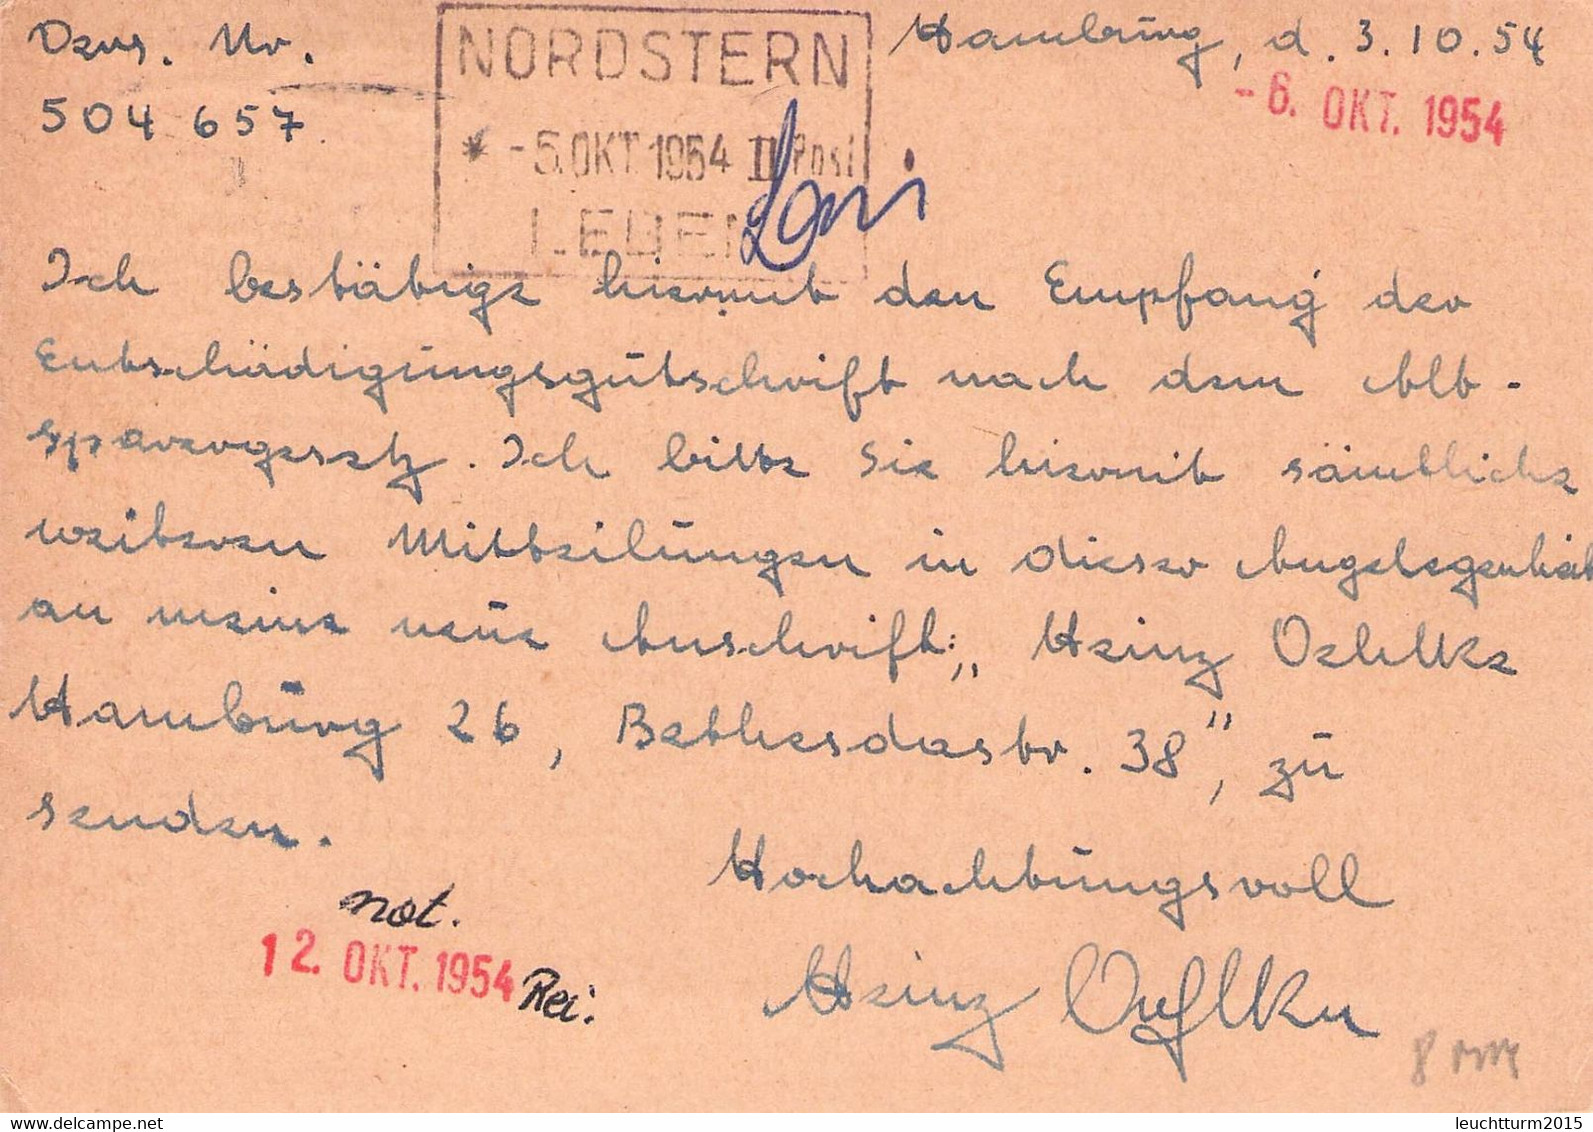 Vers. Nr.
504 657.
NORDSTERN
* -5. OKT. 1954 II Post
LEBEN
Hamburg, d. 3.10.54
-6. OKT. 1954
Ich bestätige hiermit den Empfang der
Entschädigungsgutschrift nach dem Alt-
sparergesetz. Ich bitte Sie hiermit sämtliche
weiteren Mitteilungen in dieser Angelegenheit
an meine neue Anschrift: „Heinz Oehlke
Hamburg 26, Bethesdastr. 38", zu
senden.
Hochachtungsvoll
not.
12. OKT. 1954 Rei.
Heinz Oehlke
leuchtturm2015